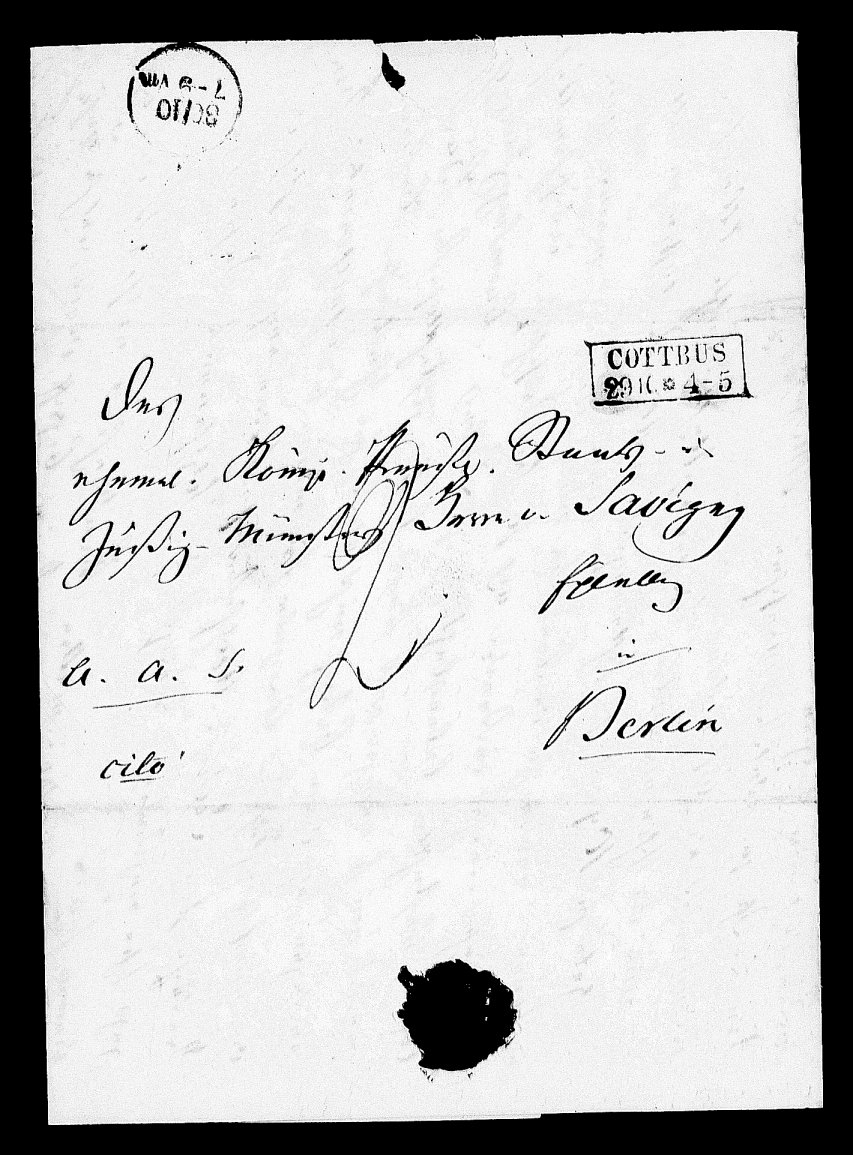 7-9 Vm
30/10
COTTBUS
29 10 * 4-5
Des
ehemal. Königl. Preuß. Staats- u
Justiz-Ministers Herrn v. Savigny
Excellenz
in
Berlin
cito!